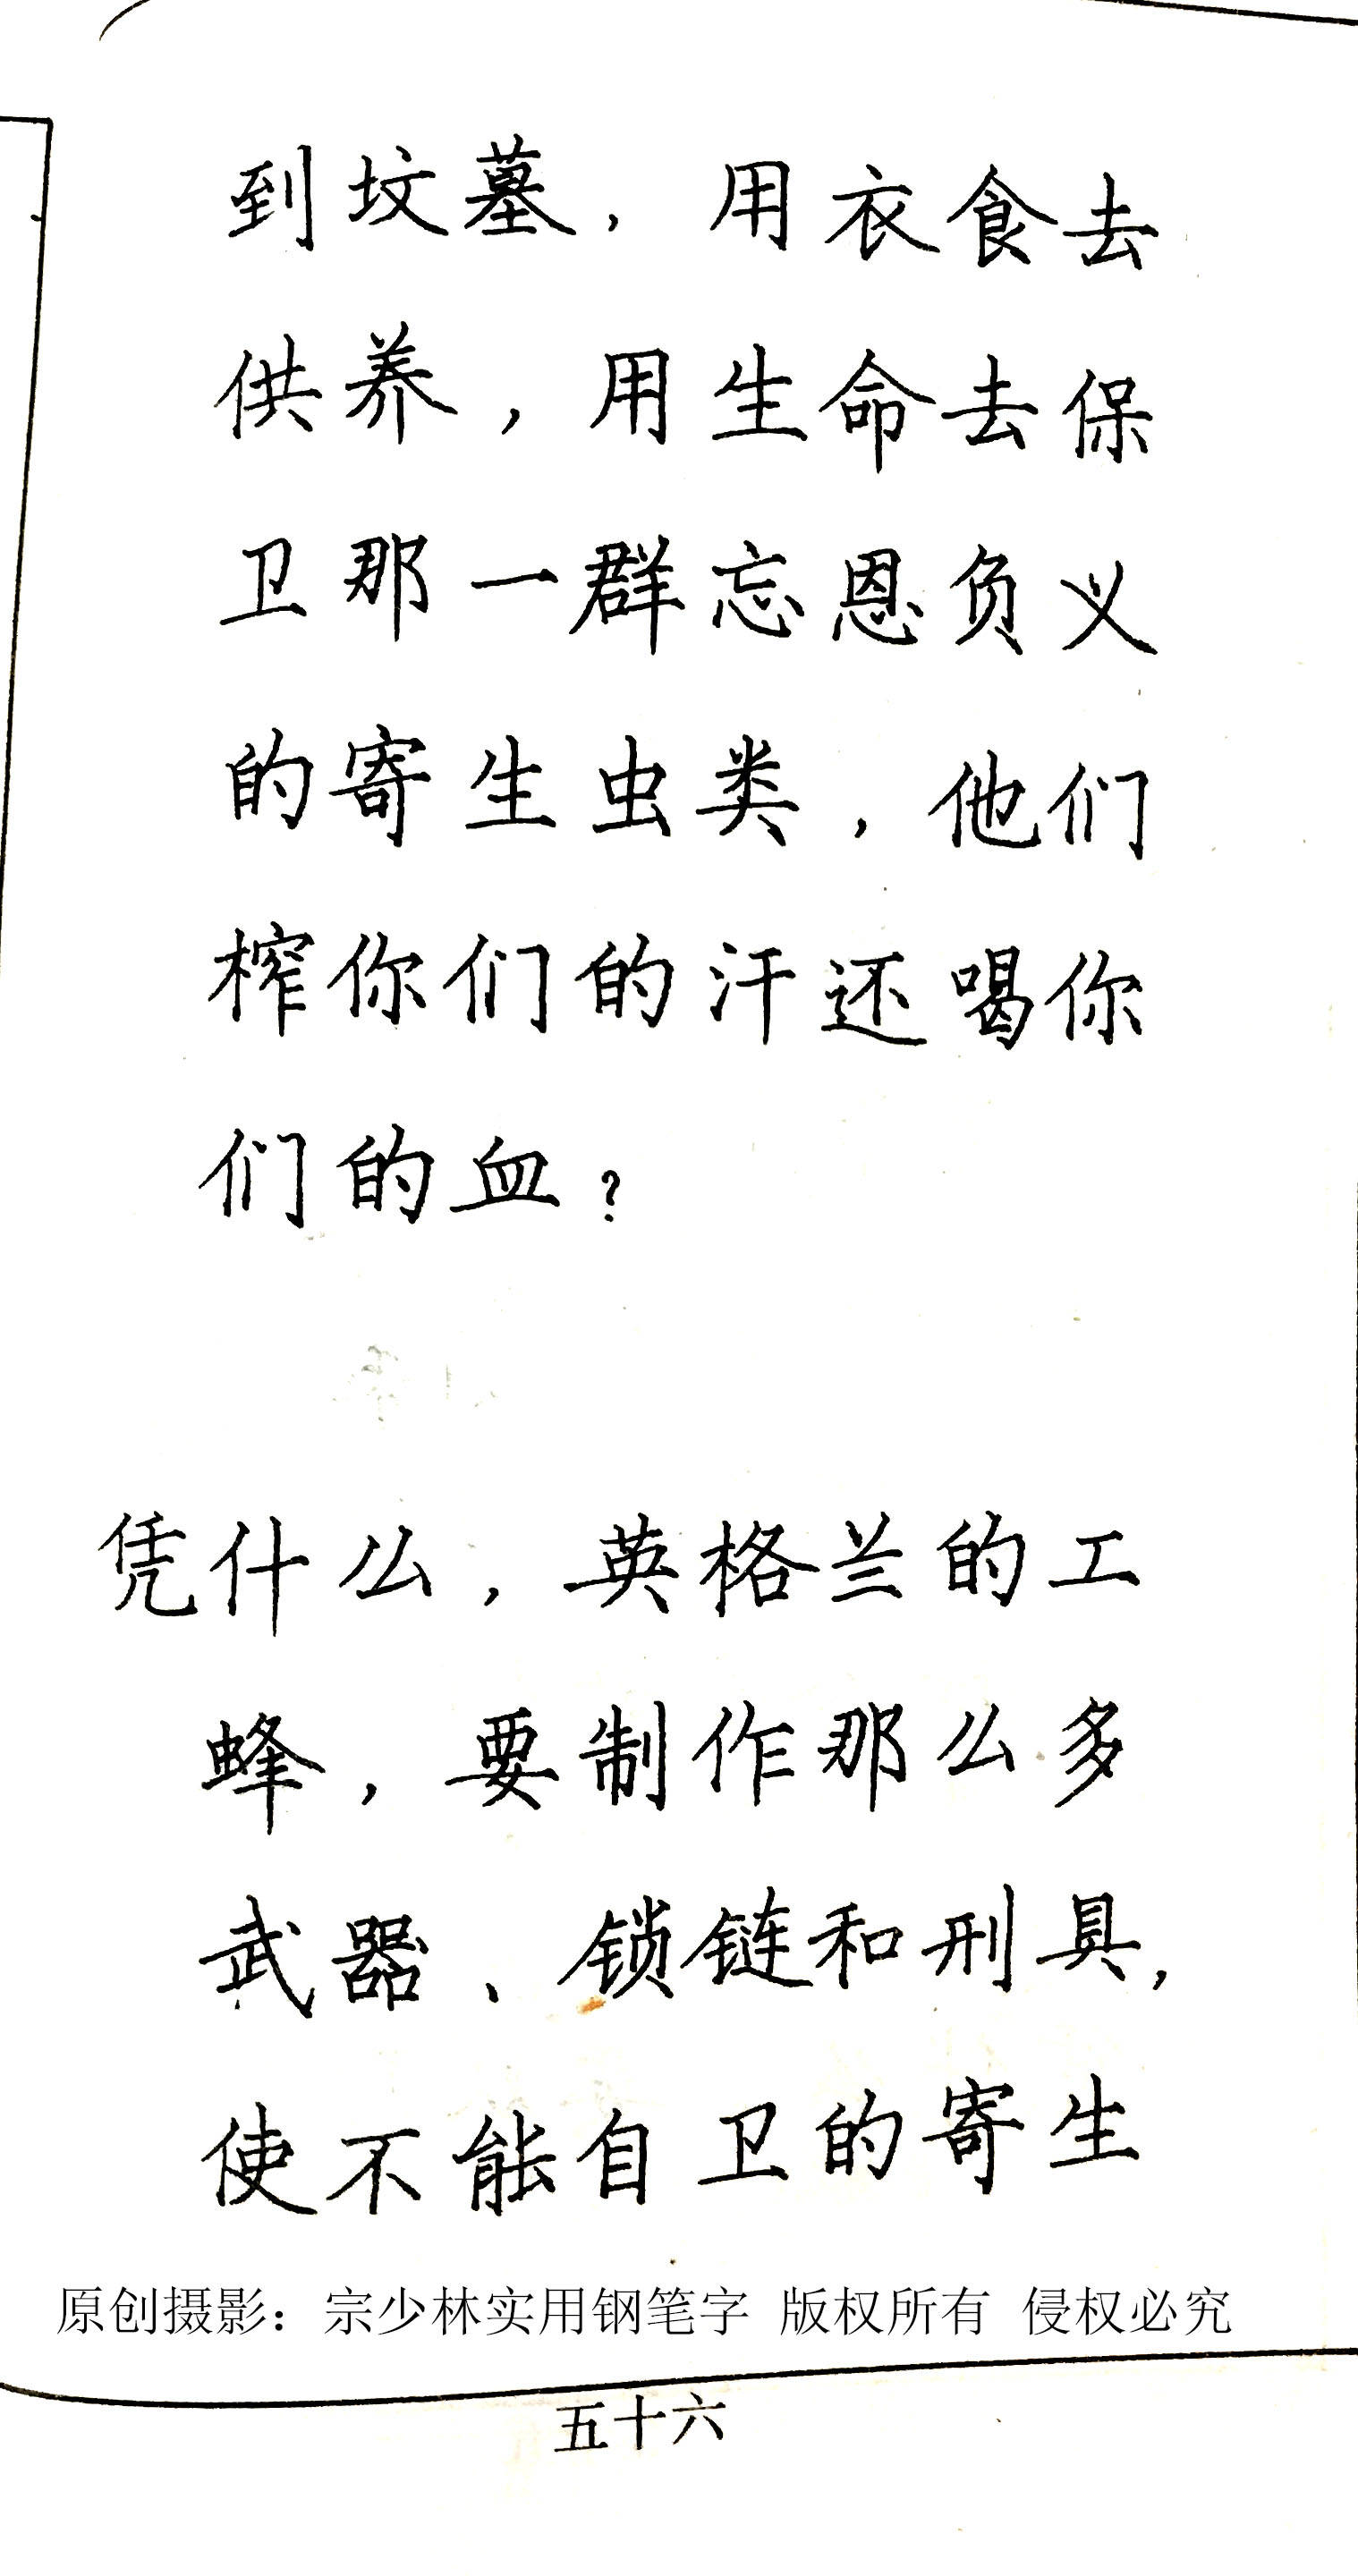 到坟墓，用衣食去
供养，用生命去保
卫那一群忘恩负义
的寄生虫类，他们
榨你们的汗还喝你
们的血？
凭什么，英格兰的工
蜂，要制作那么多
武器、锁链和刑具，
使不能自卫的寄生
原创摄影：宗少林实用钢笔字 版权所有 侵权必究
五十六